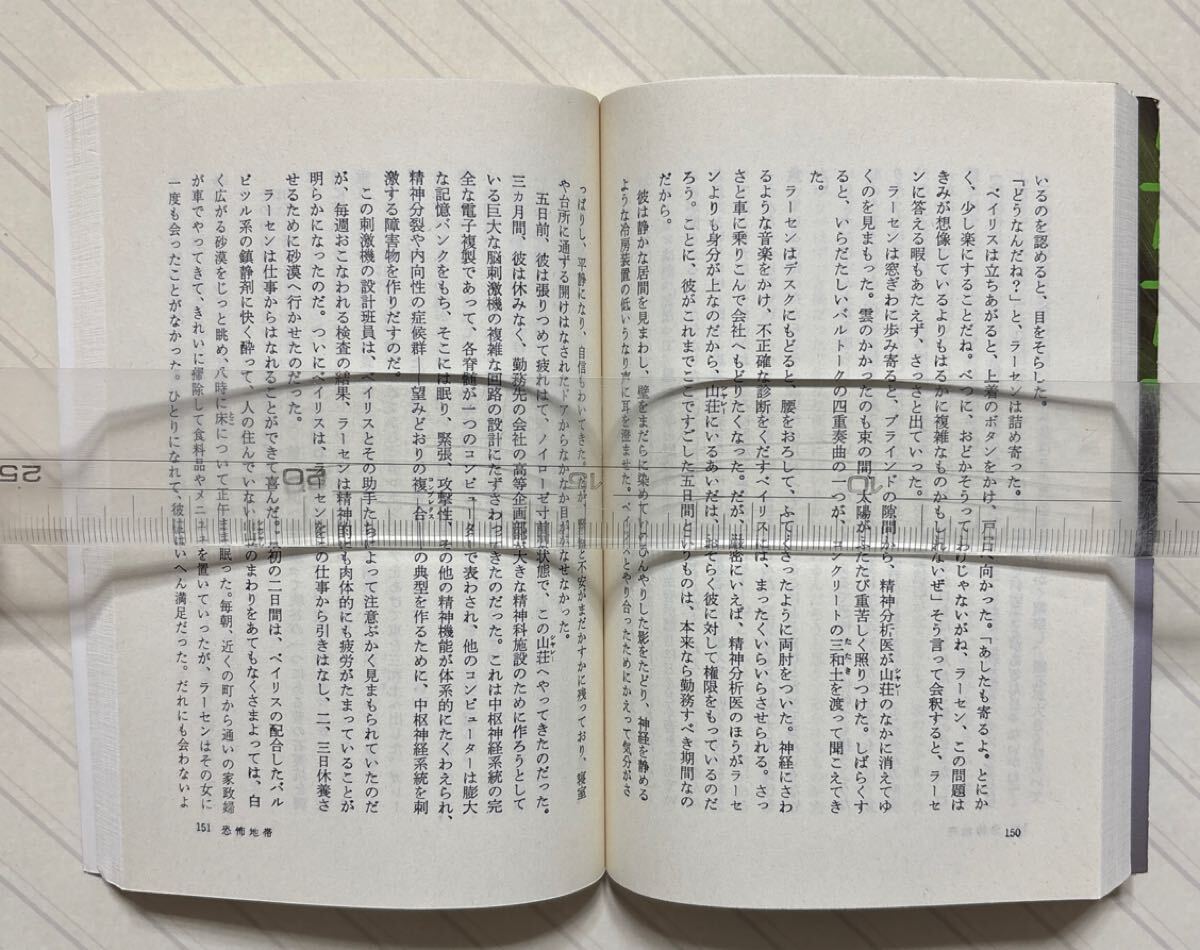 いるのを認めると、目をそらした。
「どうなんだね？」と、ラーセンは詰め寄った。
ベイリスは立ちあがると、上着のボタンをかけ、戸口へ向かった。「あしたも寄るよ。とにか
く、少し楽にすることだね。べつに、おどかそうってわけじゃないがね、ラーセン、この問題は
きみが想像しているよりもはるかに複雑なものかもしれないぜ」そう言って会釈すると、ラーセ
ンに答える暇もあたえず、さっさと出ていった。
ラーセンは窓ぎわに歩み寄ると、ブラインドの隙間から、精神分析医が山荘のなかに消えてゆ
シャレー
くのを見まもった。雲のかかったのも束の間、太陽がふたたび重苦しく照りつけた。しばらくす
ると、いらだたしいバルトークの四重奏曲の一つが、コンクリートの三和土を渡って聞こえてき
たたき
た。
ラーセンはデスクにもどると、腰をおろして、ふてくさったように両肘をついた。神経にさわ
るような音楽をかけ、不正確な診断をくだすベイリスには、まったくいらいらさせられる。さっ
さと車に乗りこんで会社へもどりたくなった。だが、厳密にいえば、精神分析医のほうがラーセ
ンよりも身分が上なのだから、山荘にいるあいだは、おそらく彼に対して権限をもっているのだ
シャレー
ろう。ことに、彼がこれまでここですごした五日間というものは、本来なら勤務すべき期間なの
だから。
彼は静かな居間を見まわし、壁をまだらに染めているひんやりした影をたどり、神経を静める
ような冷房装置の低いうなり声に耳を澄ませた。ベイリスとやり合ったためにかえって気分がさ
150
っぱりし、平静になり、自信もわいてきた。だが、緊張と不安がまだかすかに残っており、寝室
や台所に通ずる開けはなされたドアからなかなか目がはなせなかった。
五日前、彼は張りつめて疲れはて、ノイローゼ寸前の状態で、この山荘へやってきたのだった。
シャレー
三ヵ月間、彼は休みなく、勤務先の会社の高等企画部が大きな精神科施設のために作ろうとして
いる巨大な脳刺激機の複雑な回路の設計にたずさわってきたのだった。これは中枢神経系統の完
全な電子複製であって、各脊髄が一つのコンピューターで表わされ、他のコンピューターは膨大
な記憶バンクをもち、そこには眠り、緊張、攻撃性、その他の精神機能が体系的にたくわえられ、
精神分裂や内向性の症候群――望みどおりの複合――の典型を作るために、中枢神経系統を刺
コンプレクス
激する障害物を作りだすのだ。
この刺激機の設計班員は、ベイリスとその助手たちによって注意ぶかく見まもられていたのだ
が、毎週おこなわれる検査の結果、ラーセンは精神的にも肉体的にも疲労がたまっていることが
明らかになったのだ。ついにベイリスは、ラーセンをその仕事から引きはなし、二、三日休養さ
せるために砂漠へ行かせたのだった。
ラーセンは仕事からはなれることができて喜んだ。最初の二日間は、ベイリスの配合したバル
ビツル系の鎮静剤に快く酔って、人の住んでいない山荘のまわりをあてもなくさまよっては、白
シャレー
く広がる砂漠をじっと眺め、八時に床について正午まで眠った。毎朝、近くの町から通いの家政婦
が車でやってきて、きれいに掃除して食料品やメニューを置いていったが、ラーセンはその女に
一度も会ったことがなかった。ひとりになれて、彼はたいへん満足だった。だれにも会わないよ
151 恐怖地帯
25
20
15
10